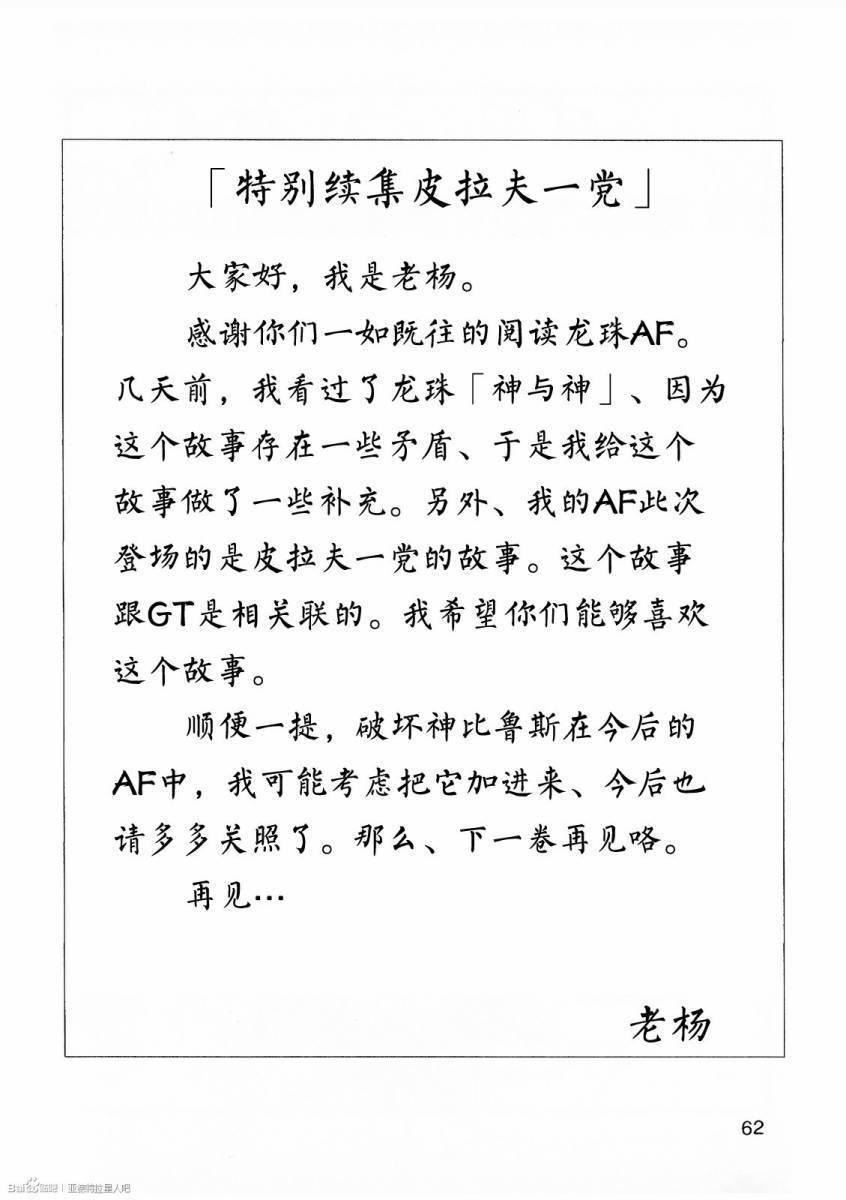 「特别续集皮拉夫一党」
大家好，我是老杨。
感谢你们一如既往的阅读龙珠AF。
几天前，我看过了龙珠「神与神」、因为
这个故事存在一些矛盾、于是我给这个
故事做了一些补充。另外、我的AF此次
登场的是皮拉夫一党的故事。这个故事
跟GT是相关联的。我希望你们能够喜欢
这个故事。
顺便一提，破坏神比鲁斯在今后的
AF中，我可能考虑把它加进来、今后也
请多多关照了。那么、下一卷再见咯。
再见…
老杨
62
Bai 贴吧 | 亚德特拉星人吧